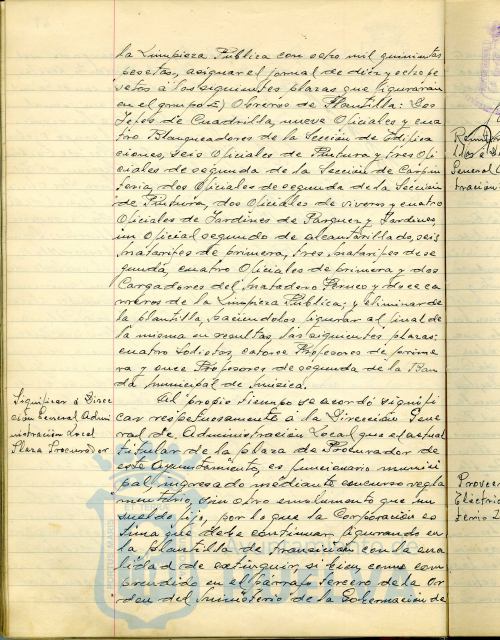 la Limpieza Pública con ocho mil quinientas
pesetas, asignar el jornal de diez y ocho pe
setas a los siguientes plazas que figuraran
en el grupo E) Obreros de Plantilla: Dos
Jefes de Cuadrilla, nueve Oficiales y cua
tro Blanqueadores de la Sección de Edifica
ciones, seis Oficiales de Pintura y tres Ofi
ciales de segunda de la Sección de Carpin
tería, dos Oficiales de segunda de la Sección
de Pintura, dos Oficiales de viveros y cuatro
Oficiales de Jardines de Parques y Jardines,
un Oficial segundo de alcantarillado, seis
Matarifes de primera, tres Matarifes de se
gunda, cuatro Oficiales de primera y dos
Cargadores del Matadero y doce ca
rreros de la Limpieza Pública; y eliminar de
la plantilla, haciéndolos figurar al final de
la misma en resultas, las siguientes plazas:
cuatro Solistas, catorce Profesores de prime
ra y once Profesores de segunda de la Ban
da Municipal de Música.
Significar a Direc
ción General Admi
nistración Local
Plaza Procurador
Al propio tiempo se acordó signifi
car respetuosamente a la Dirección Gene
ral de Administración Local que el actual
titular de la plaza de Procurador de
este Ayuntamiento, es funcionario munici
pal, ingresado mediante concurso regla
mentario, sin otro emolumento que un
sueldo fijo, por lo que la Corporación es
tima que debe continuar figurando en
la plantilla de transición con la cua
lidad de extinguir, si bien, como com
prendido en el párrafo tercero de la Or
den del Ministerio de la Gobernación de
General
tración
Proveer
Eléctric